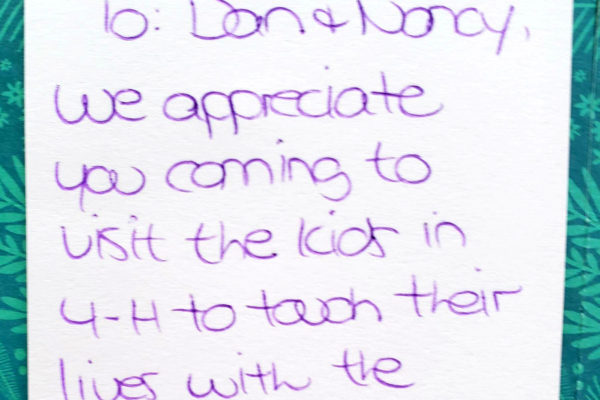 To: Dan & Nancy,
We appreciate
you coming to
visit the kids in
4-H to touch their
lives with the